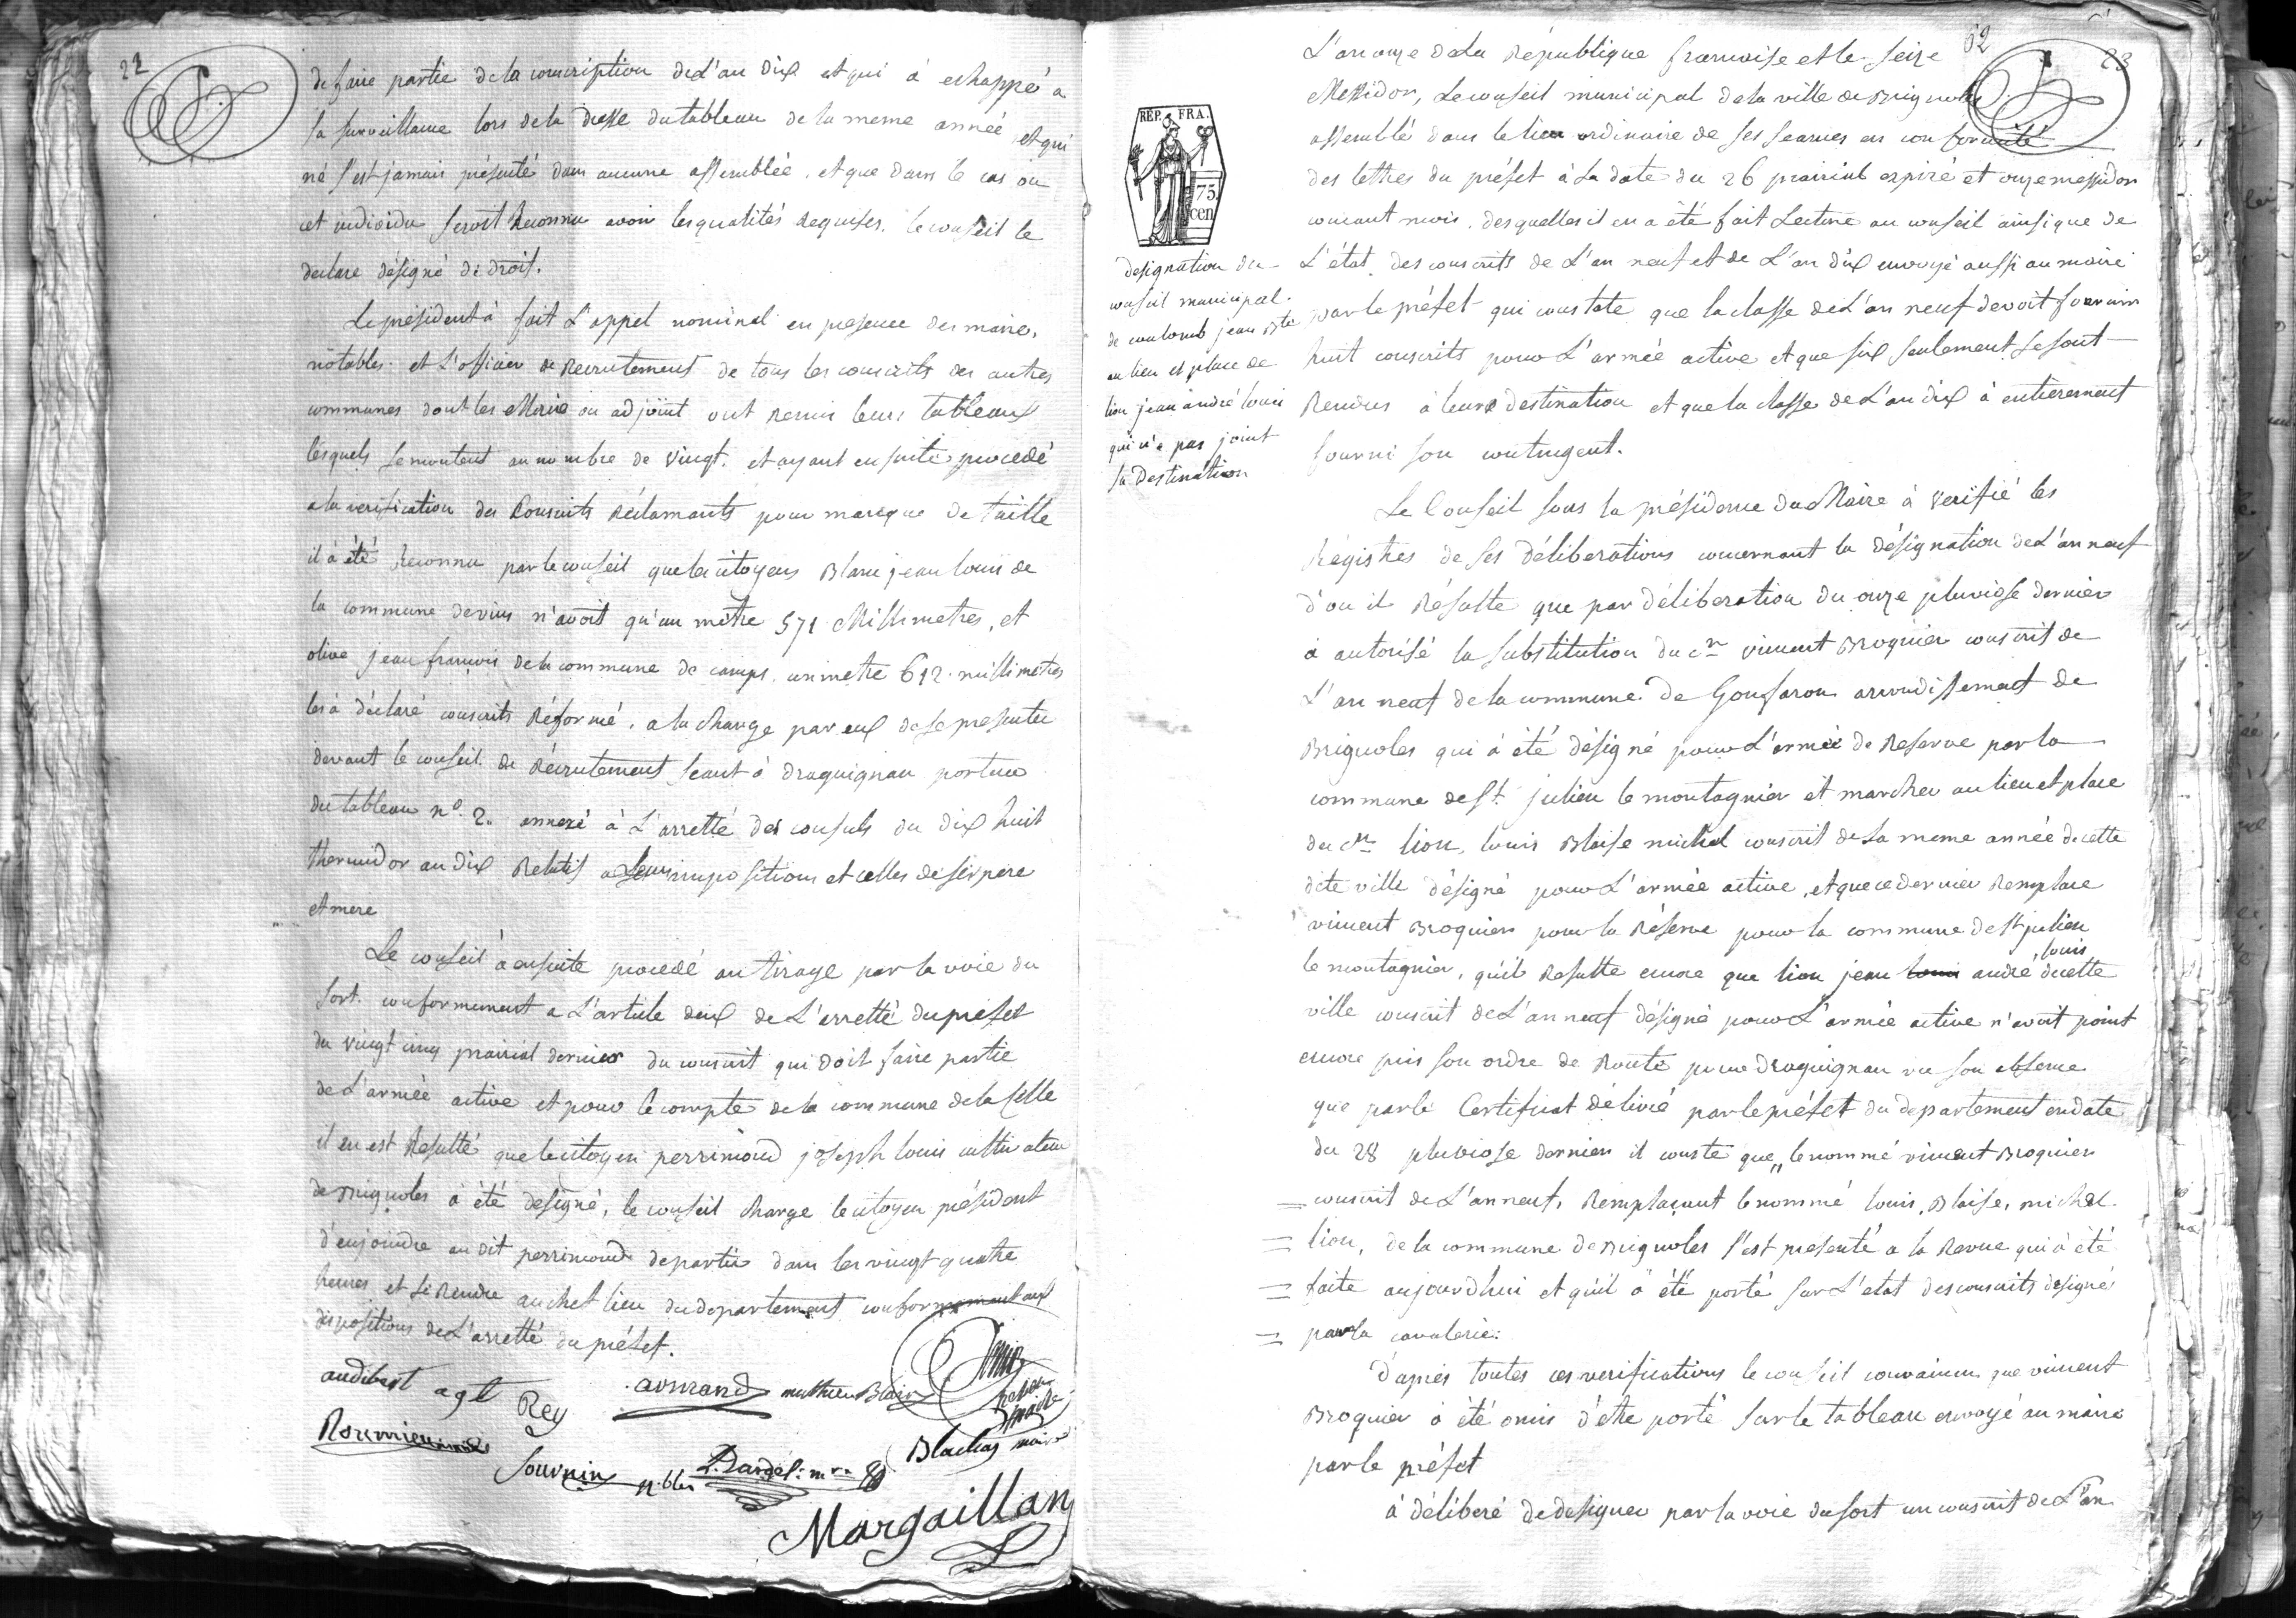 22
de faire partie de la conscription de L'an Dix et qui à echappé a
sa surveillance lors de la Dresse du tableau de la meme année et qui
né s'est jamais présenté dans aucune assemblée, et que dans le cas ou
cet individu seroit Reconnu avoir les qualités Requises. le conseil le
declare désigné de droit.
Le président à fait L'appel nominal en presence des maire,
nôtables et L'officier de Recrutement de tous les conscrits des autres
communes dont les Maire ou adjoint ont Remis leurs tableaux
lesquels se montent au nombre de vingt. et ayant ensuite procedé
a la verification des Conscrits Réclamants pour manque de taille
il à été Reconnu par le conseil que les citoyens Blanc jean louis de
la commune de vins n'avoit qu'un mètre 571 Millimetres, et
olive jean françois de la commune de camps. un metre 612. millimetres
les à déclaré conscrits Réformé. a la charge par eux de se presenter
devant le conseil de Récrutement seant à draguignan porteur
du tableau n.º 2. annexé à L'arretté des consuls du dix huit
thermidor an dix Relatif a Leurs impositions et celles de ses pere
et mere
Le conseil à ensuite procedé au tirage par la voie du
sort. conformement a L'article deux de L'arretté du préfet
du vingt cinq prairial dernier du conscrit qui doit faire partie
de L'armée active et pour le compte de la commune de la Celle
il en est Resulté que le citoyen perrimond joseph louis cultivateur
de Brignoles à été designé, le conseil charge le citoyen président
d'enjoindre au dit perrimond de partir dans les vingt quatre
heures et se Rendre au chef lieu du departement conformement aux
dispositions de L'arretté du préfet.
audibert agt Rey armand mathieu Blanc
Souvrin n.bles L. Dardel: m.re Blachas maire
Margaillan
62
23
L'an onze de La République francoise et le seize
Messidor, Le conseil municipal de la ville de Brignoles
assemblé dans le lieu ordinaire de ses seances en conformité
des lettres du préfet à La date du 26 prairial expiré et onze messidor
courant mois. desquelles il en a été fait Lecture au conseil ainsi que de
L'état des conscrits de L'an neuf et de L'an dix envoyé aussi au maire
par le préfet qui constate que la classe de L'an neuf devoit fournir
huit conscrits pour L'armée active et que six seulement se sont
Rendus à leurs destination et que la classe de L'an dix à entierement
fourni son contingent.
REP. FRA.
75
cen
designation du
conseil municipal.
de coulomb jean Bte
au lieu et place de
lion jean andré louis
qui n'a pas joint
sa Destination
Le Conseil sous la présidence du Maire à verifié les
Régistres de ses Déliberations concernant la désignation de L'an neuf
d'ou il Résulte que par déliberation du onze pluviose dernier
à autorisé la substitution du c.en vincent Broquier conscrit de
L'an neuf de la commune De Gonfaron arrondissement de
Brignoles qui à été désigné pour L'armée de Reserve par la
commune de St. julien le montagnier et marcher au lieu et place
du c.en lion, louis Blaise michel conscrit de La meme année de cette
dite ville désigné pour L'armée active, et que ce dernier Remplace
vincent Broquier pour la Réserve pour la commune de St julien
le montagnier, qu'il Resulte encore que lion jean louis andré louis de cette
ville conscrit de L'an neuf désigné pour L'armée active n'avoit point
encore pris son ordre de Route pour Draguignan vu son absence
que par le Certificat délivré par le préfet du departement en date
du 28 pluviose dernier il conste que „le nommé vincent Broquier
= conscrit de L'an neuf. Remplaçant le nommé louis, Blaise, michel
= lion, de la commune de Brignoles s'est presenté a la Revue qui à été
= faite aujourdhui et qu'il à été porté sur L'état des conscrits désigné
= pour la cavalerie.
D'après toutes ces verifications le conseil convaincu que vincent
Broquier à été omis d'etre porté sur le tableau envoyé au maire
par le préfet
à déliberé de designer par la voie du sort un conscrit de L'an